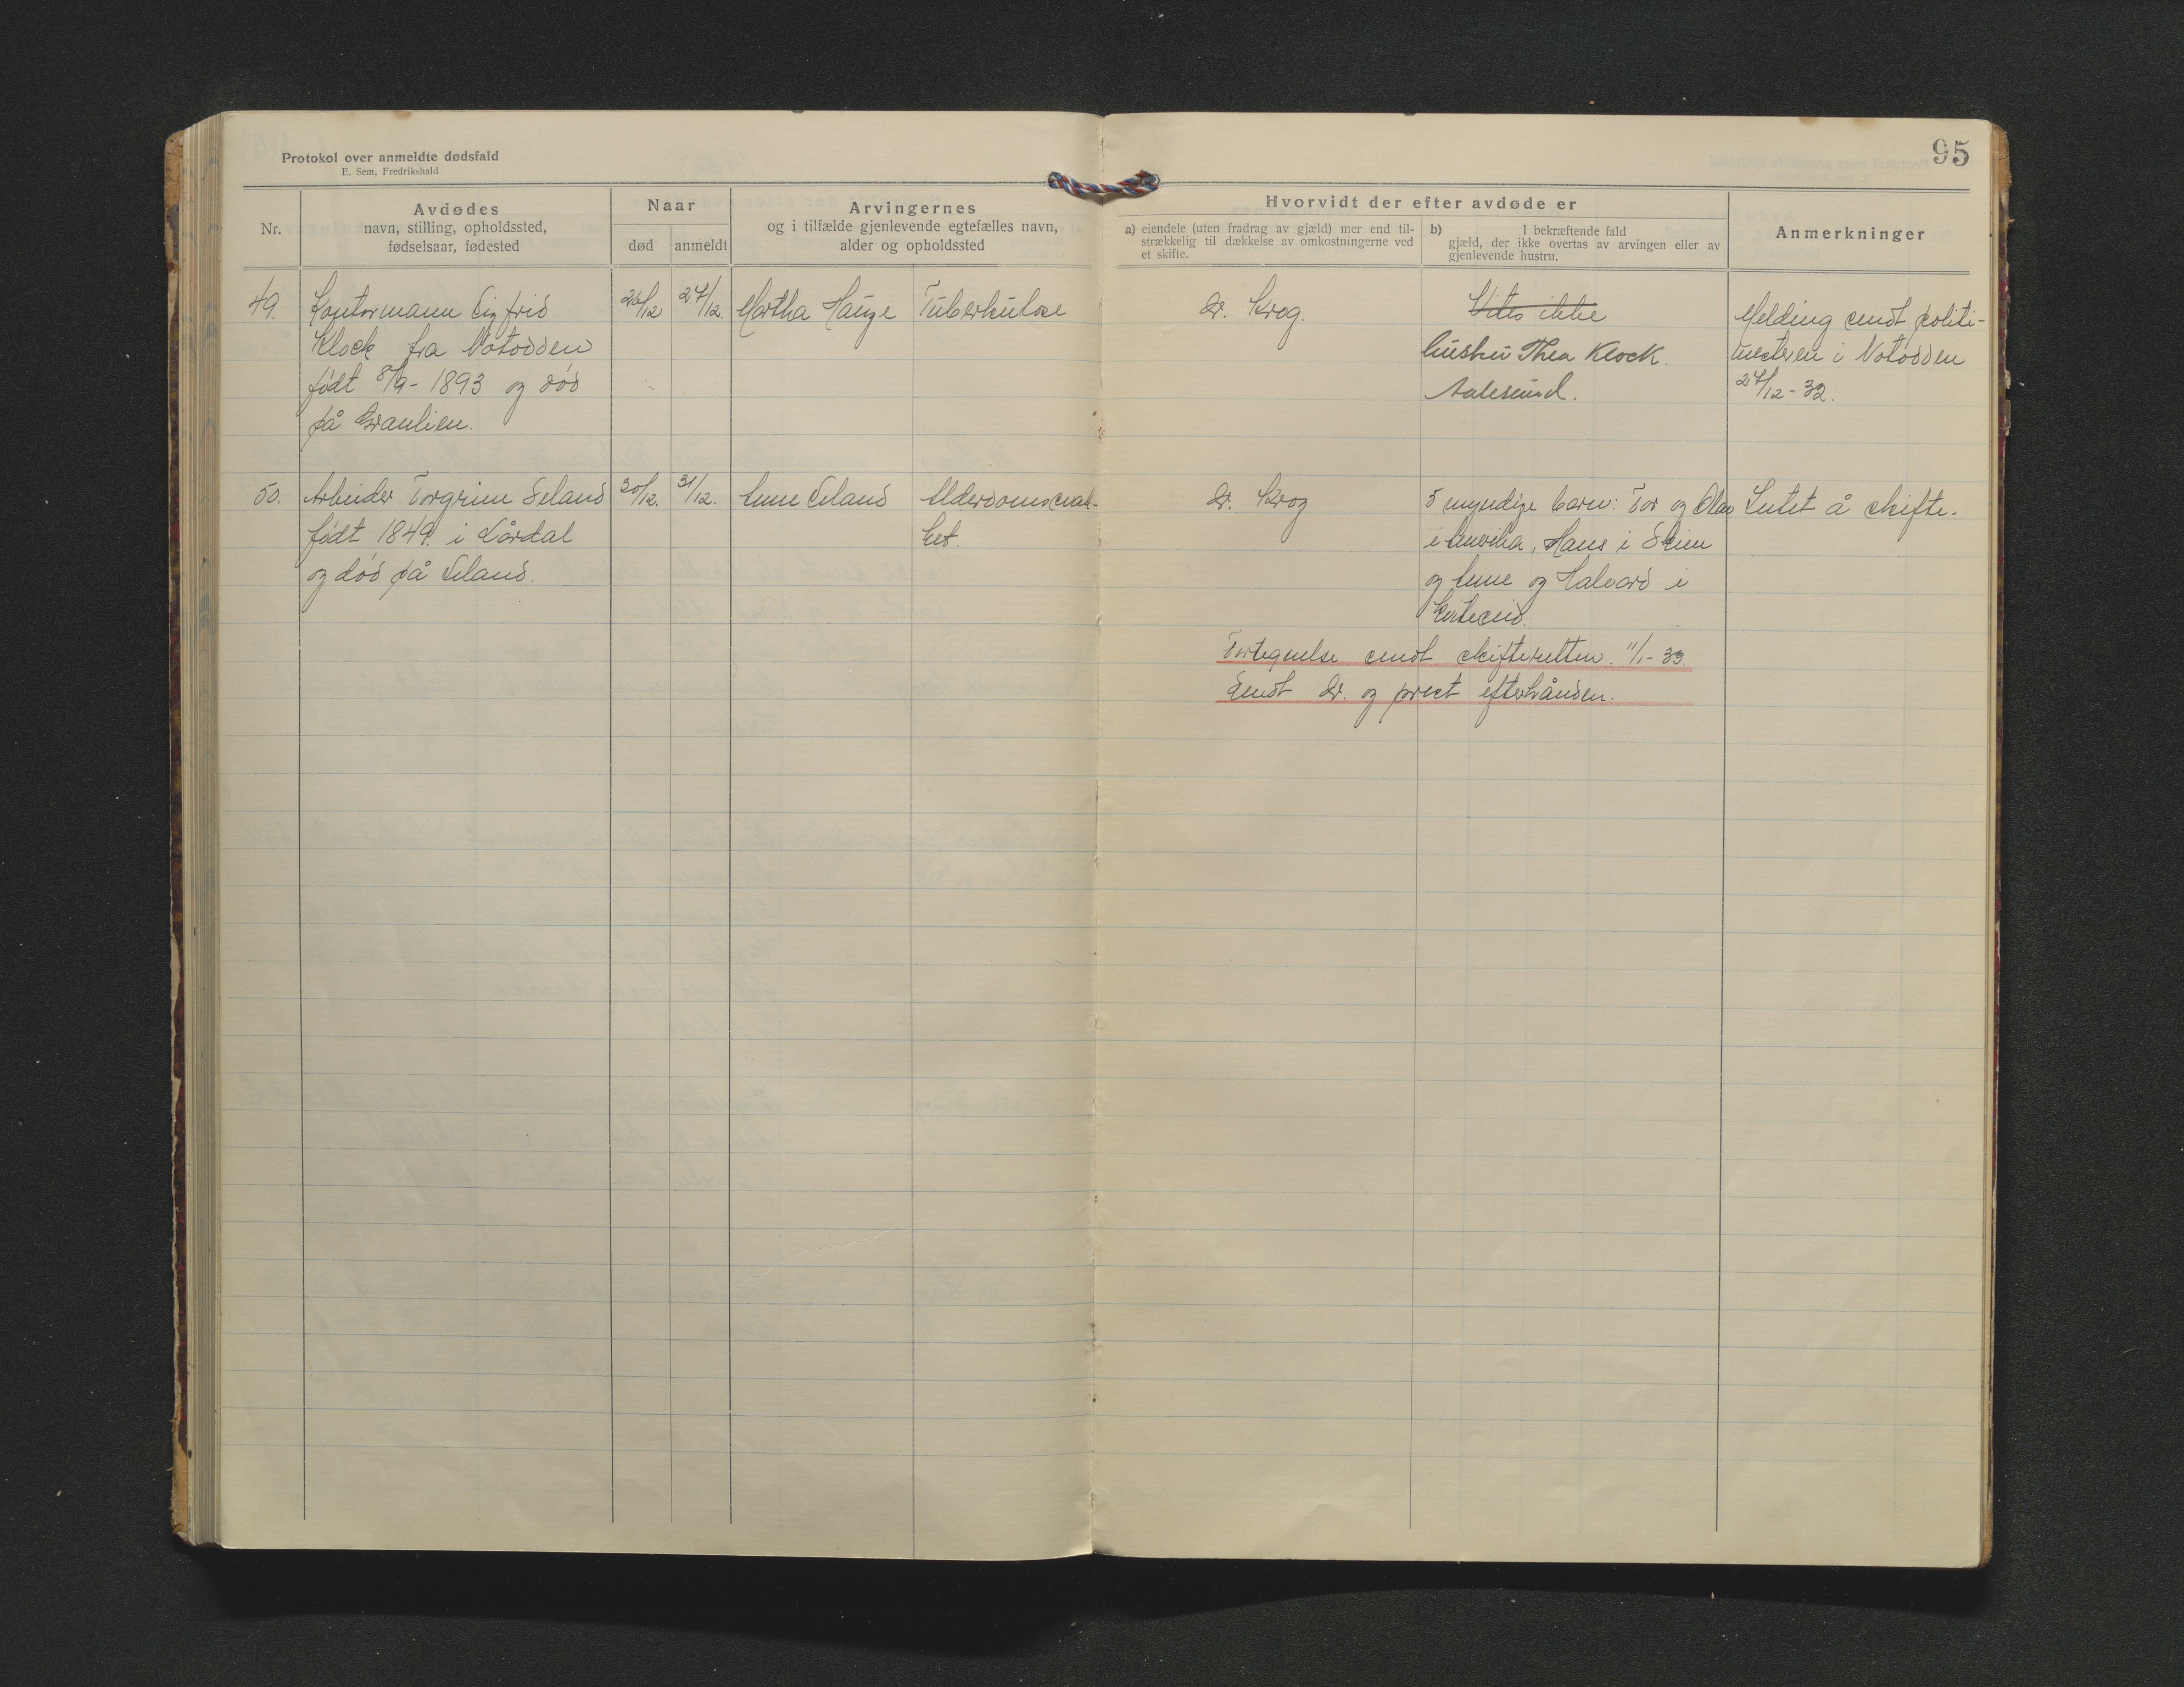 Protokol over anmeldte dødsfald
E. Sem, Fredrikshald
95
Nr.
Avdødes
navn, stilling, opholdssted,
fødselsaar, fødested
Naar
død
anmeldt
Arvingernes
og i tilfælde gjenlevende egtefælles navn,
alder og opholdssted
Hvorvidt der efter avdøde er
a) eiendele (uten fradrag av gjæld) mer end til-
strækkelig til dækkelse av omkostningerne ved
et skifte.
b) I bekræftende fald
gjæld, der ikke overtas av arvingen eller av
gjenlevende hustru.
Anmerkninger
49.
Kontormann Sigfrid
Klock fra Notodden
født 8/9 - 1893 og død
på Granlien.
26/12
27/12.
Martha Hauge
Tuberkulose
Dr. Krog.
Vites ikke
hustru Thea Klock.
Aalesund.
Melding sendt politi-
mesteren i Notodden
27/12 - 32.
50.
Arbeider Torgrim Seland
født 1849. i Lårdal
og død på Seland.
30/12.
31/12.
Anne Seland
Alderdomssvak-
het.
Dr. Krog
5 myndige barn: Tor og Olav
i Amerika, Hans i Skien
og Anne og Halvard i
Kviteseid.
Intet å skifte.
Fortegnelse sendt skifteretten. 11/1 - 33.
Sendt dr. og prest efterhånden.